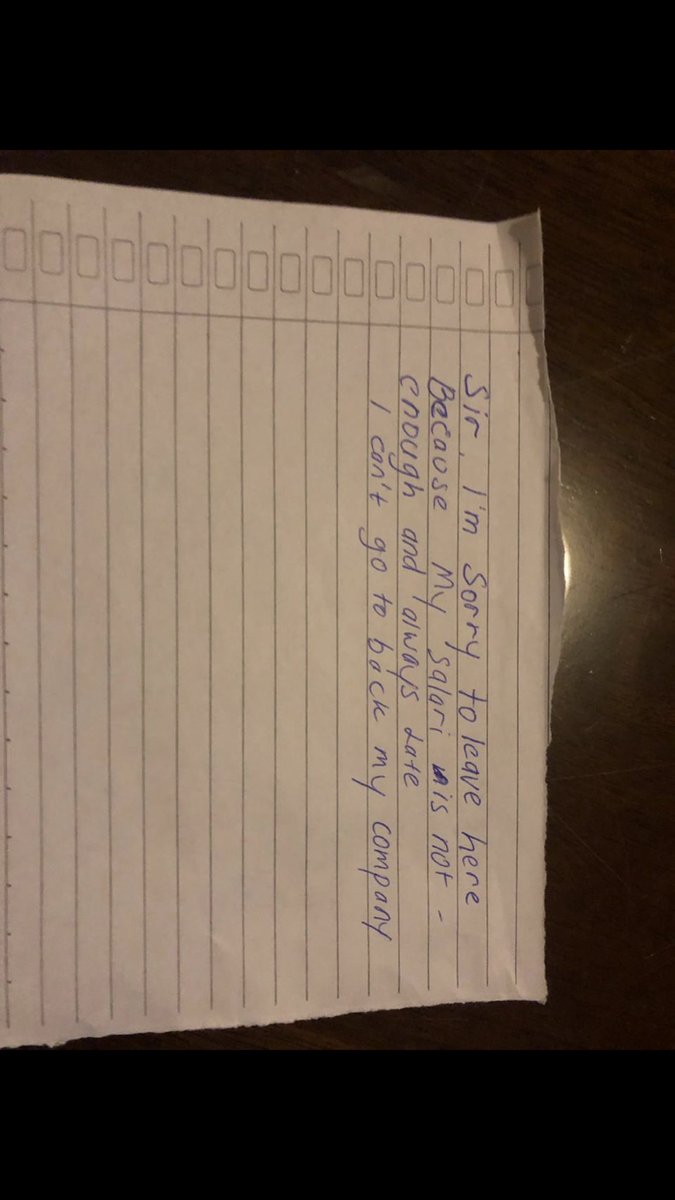 Sir, I'm Sorry to leave here
Because My Salari is not -
enough and always Late
I can't go to back my company